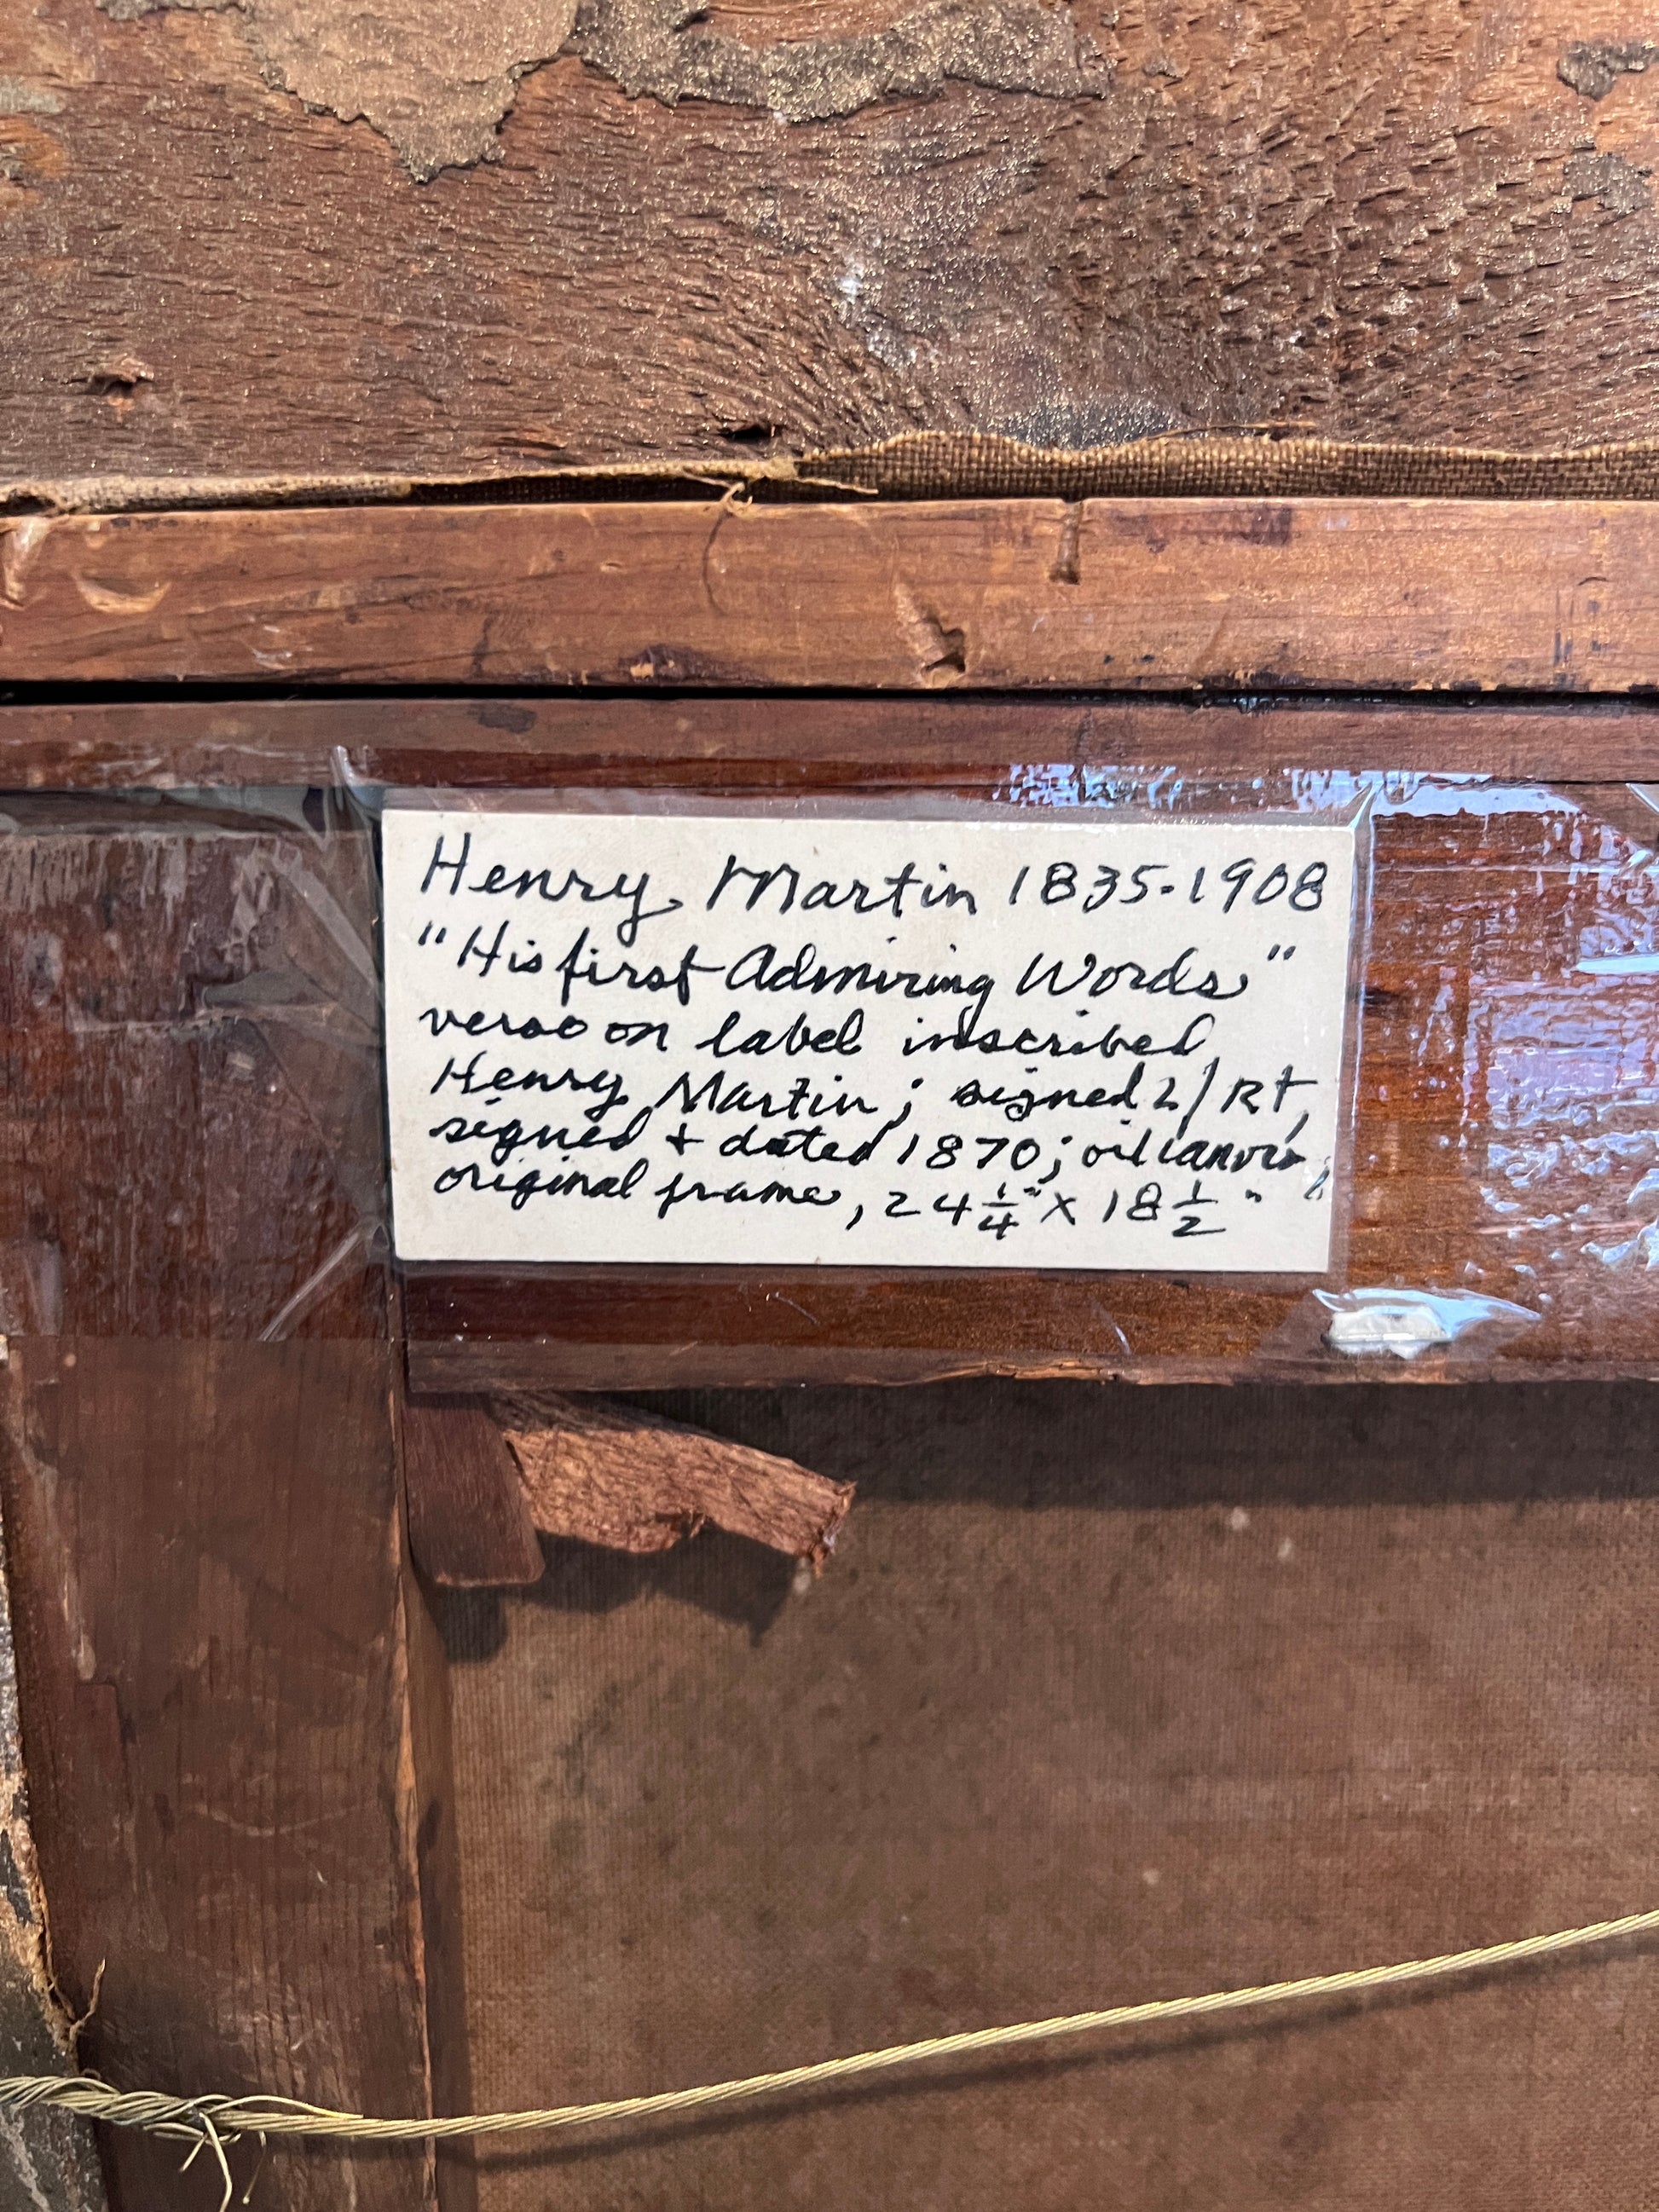 Henry Martin 1835-1908
"His first Admiring Words"
verso on label inscribed
Henry Martin; signed L/Rt,
signed + dated 1870; oil canvas,
original frame, 24 1/4" x 18 1/2"